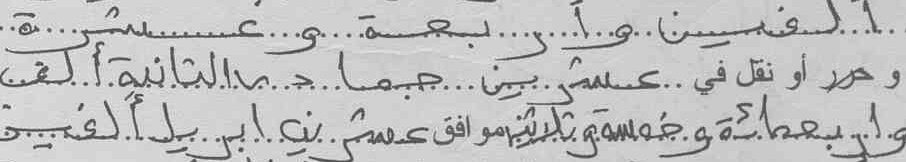 ألفين وأربعة وعشرة
وحرر أو نقل في عشرين جماد الثانية ألف
وأربعمائة وخمسة وثلاثين موافق عشرين ابريل ألفين